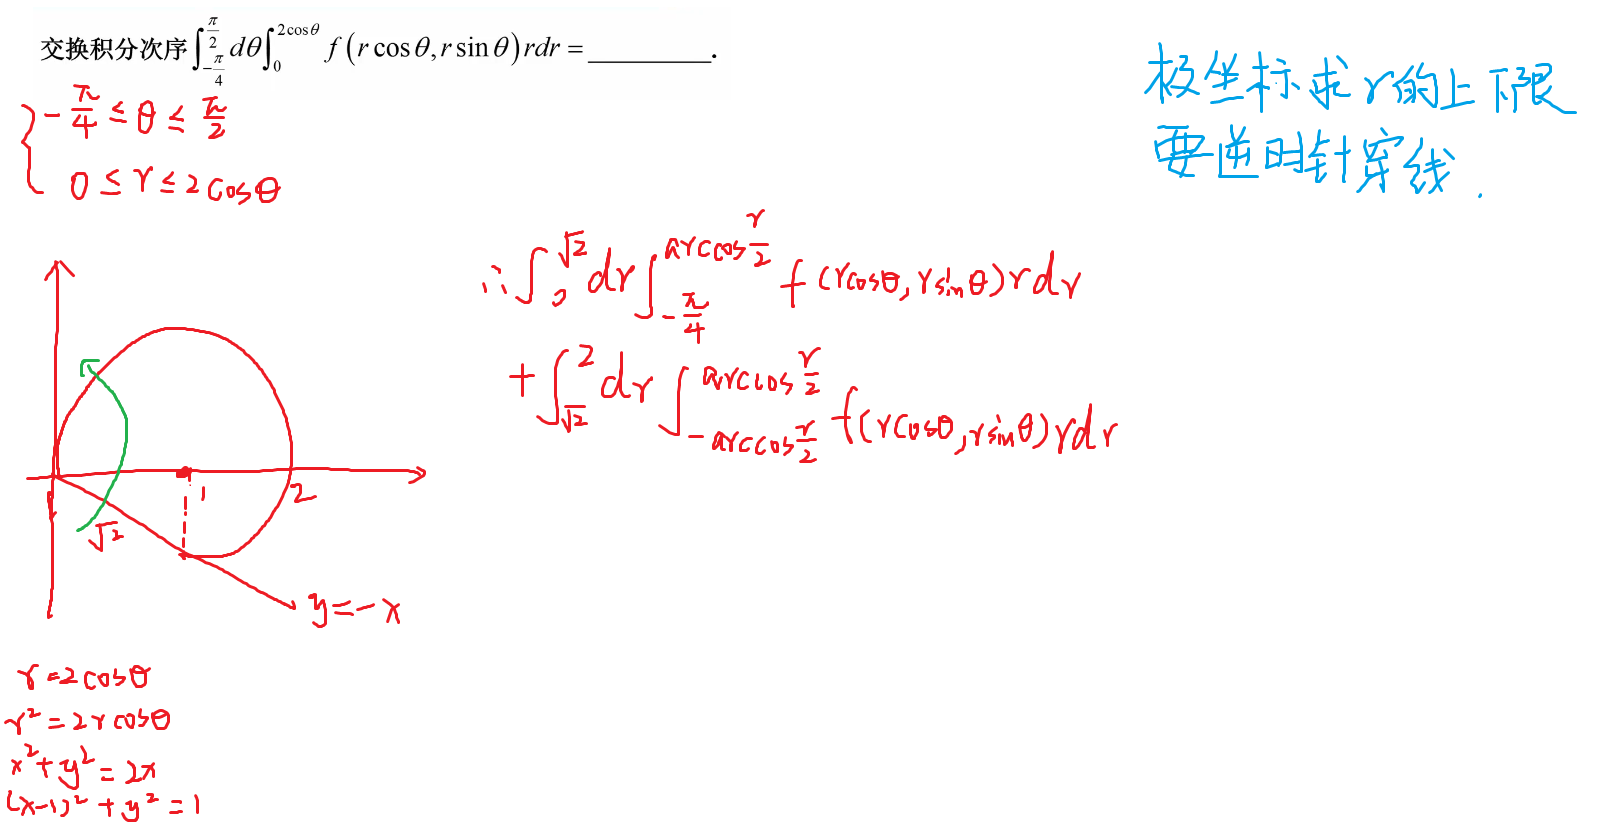 交换积分次序∫_{-π/4}^{π/2} dθ∫_0^{2cosθ} f(r cosθ, r sinθ)rdr = ________.
-π/4 ≤ θ ≤ π/2
0 ≤ r ≤ 2cosθ
极坐标求r的上下限
要逆时针穿线.
∴∫_0^{√2} dr∫_{-π/4}^{arccos r/2} f(rcosθ, rsinθ)rdr
+∫_{√2}^2 dr∫_{-arccos r/2}^{arccos r/2} f(rcosθ, rsinθ)rdr
1
2
√2
y=-x
r=2cosθ
r²=2rcosθ
x²+y²=2x
(x-1)²+y²=1